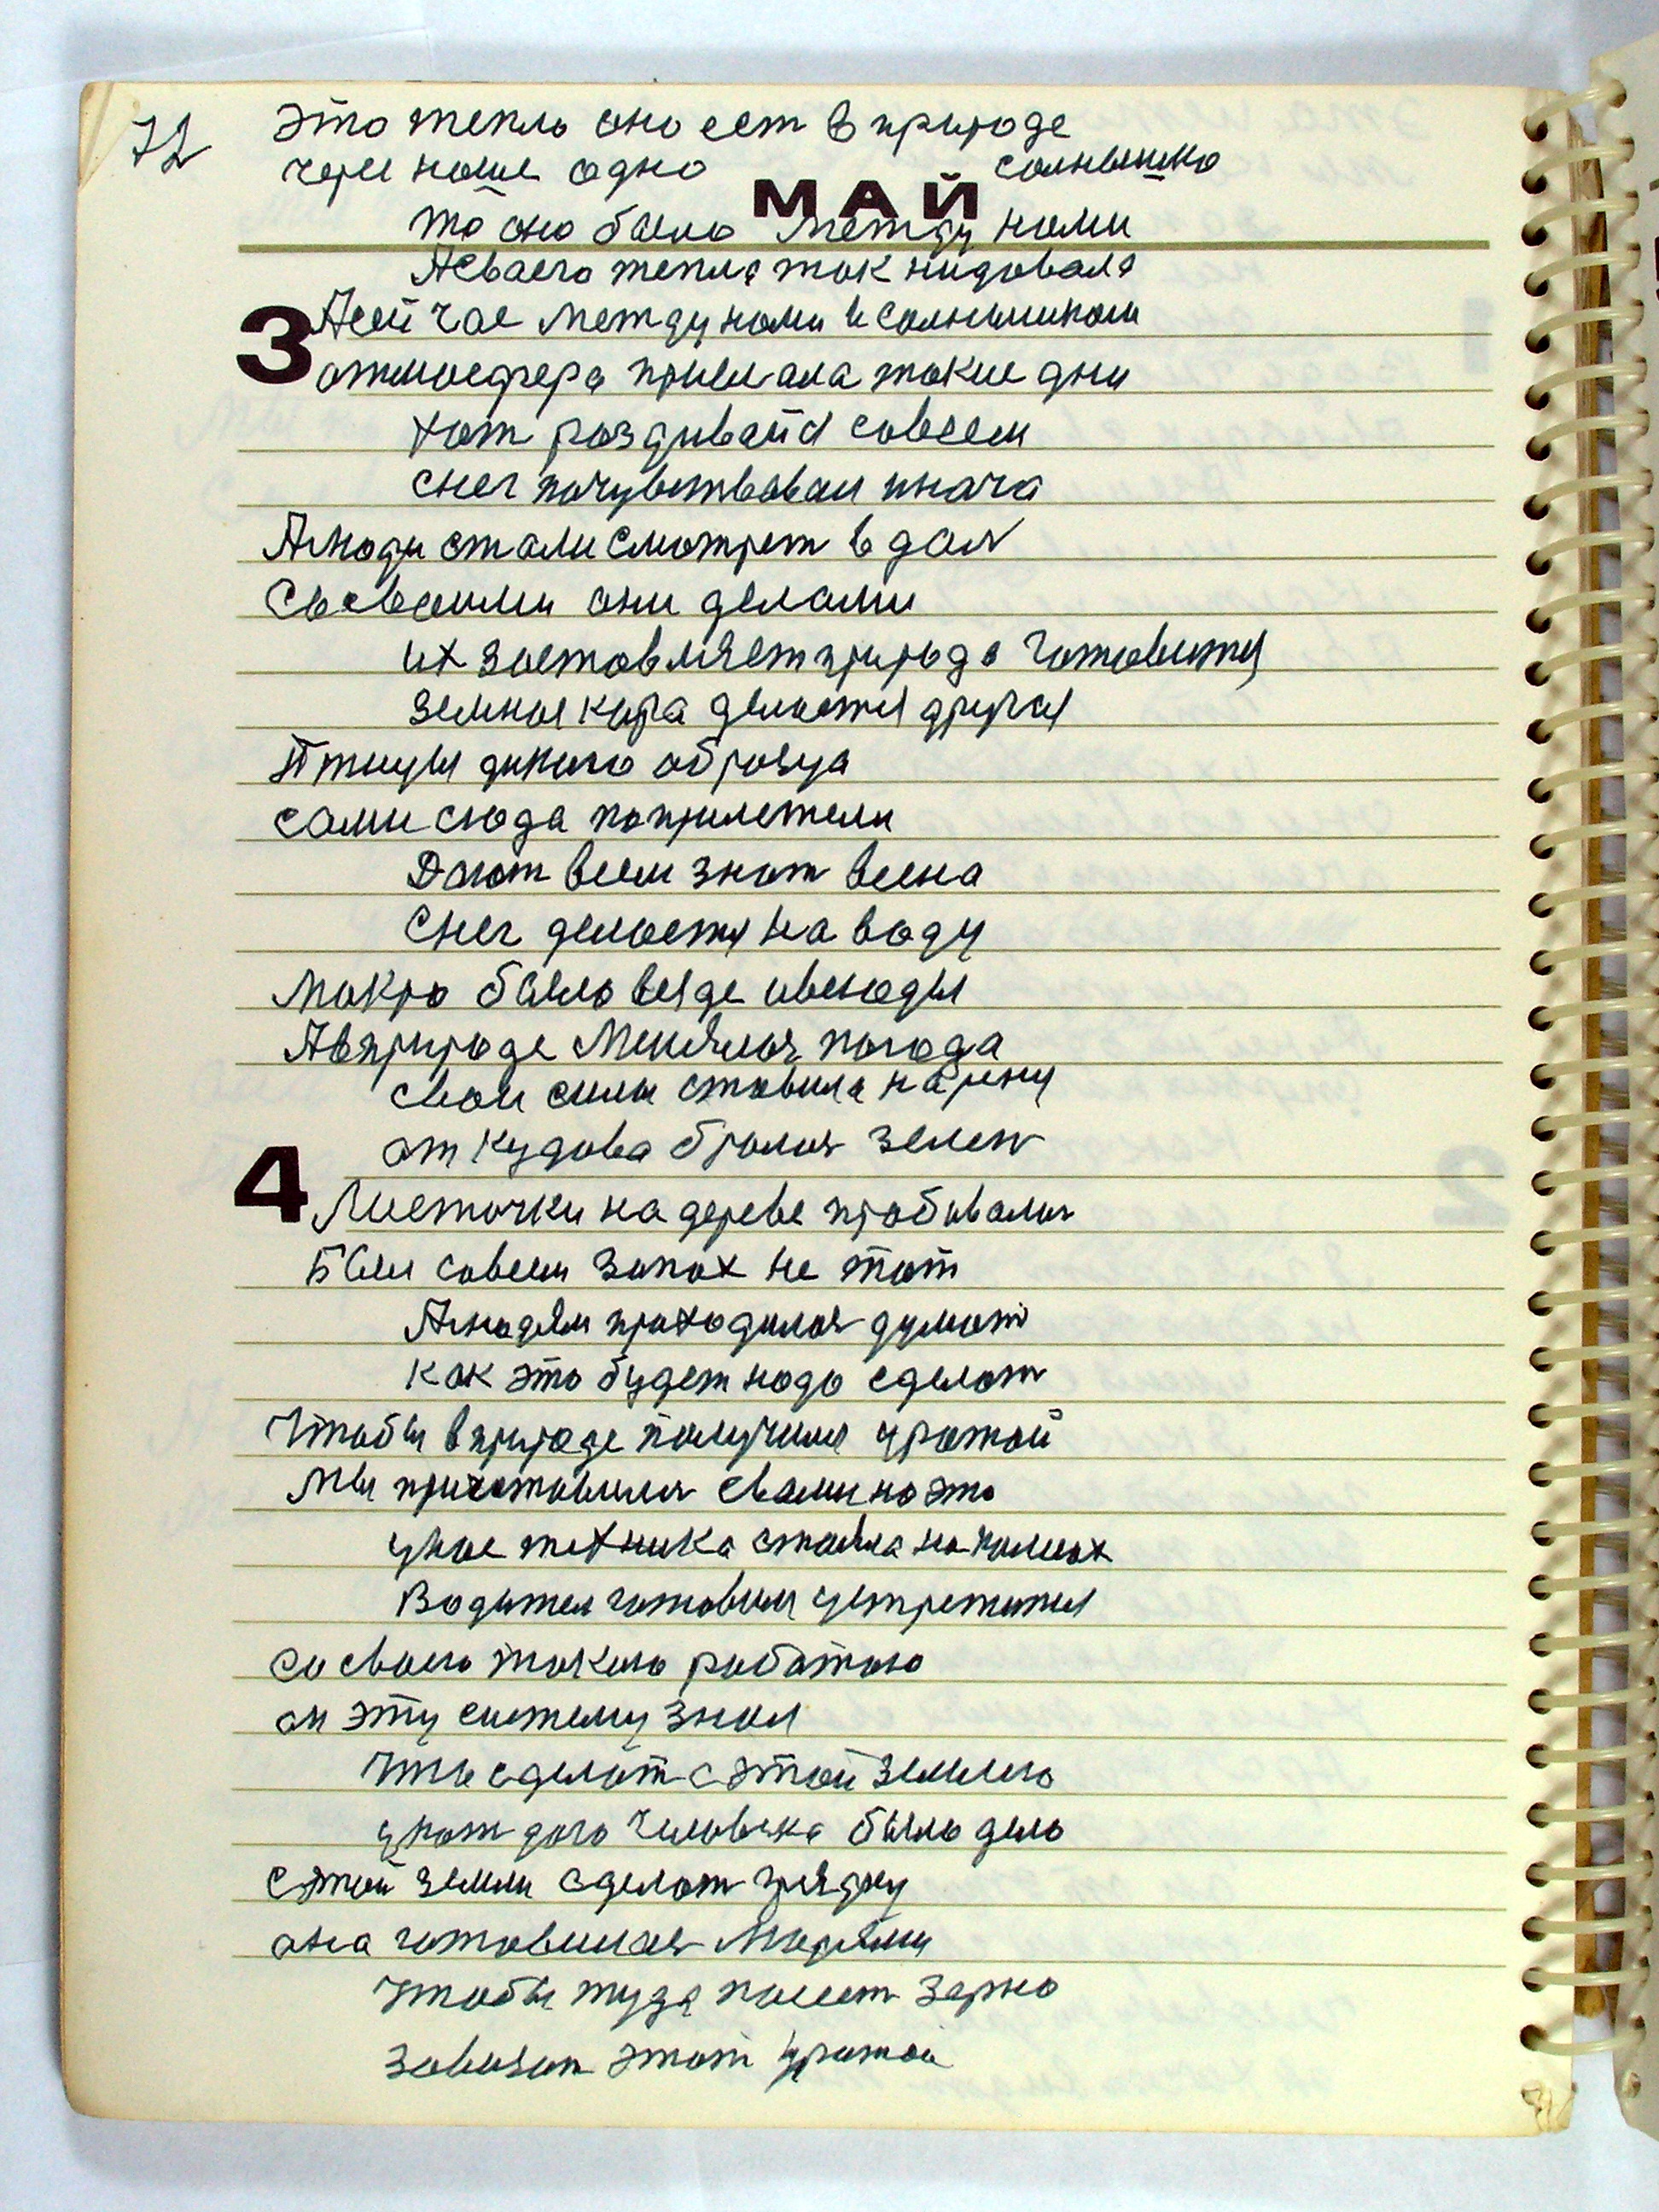 72
это тепло оно ест в природе
через наше одно солнышко
МАЙ
то оно было между нами
А сваего тепла так нидовала
3
А сей час между нами и солнышиком
атмосфера прислала такие дни
хот раздивайся совсем
снег почувствовал иначе
А люди стали смотрет в дал
Со своими они делами
их заставляет природа готовится
земная кора делается другая
Птицы дикого образца
сами сюда поприлетели
Дают всем знат весна
Снег делается на воду
мокро было везде и всюды
А в природе Менялас погода
свои силы ставила на рену
от кудова бралас зелен
4
Листочки на дереве пробивалис
Был совсем запах не тот
А людям приходилос думат
как это будет надо сделат
Чтобы в природе получился урожай
мы приготовилис сваими на это
у нас техника стаяла на полях
Водител готовил устремится
со своею такою работаю
он эту систему знал
Что сделат с этой землею
у каждого человека было дело
с этой земли сделат грядку
она готовилася морями
Чтобы туда посеет зерно
завязат этот урожай